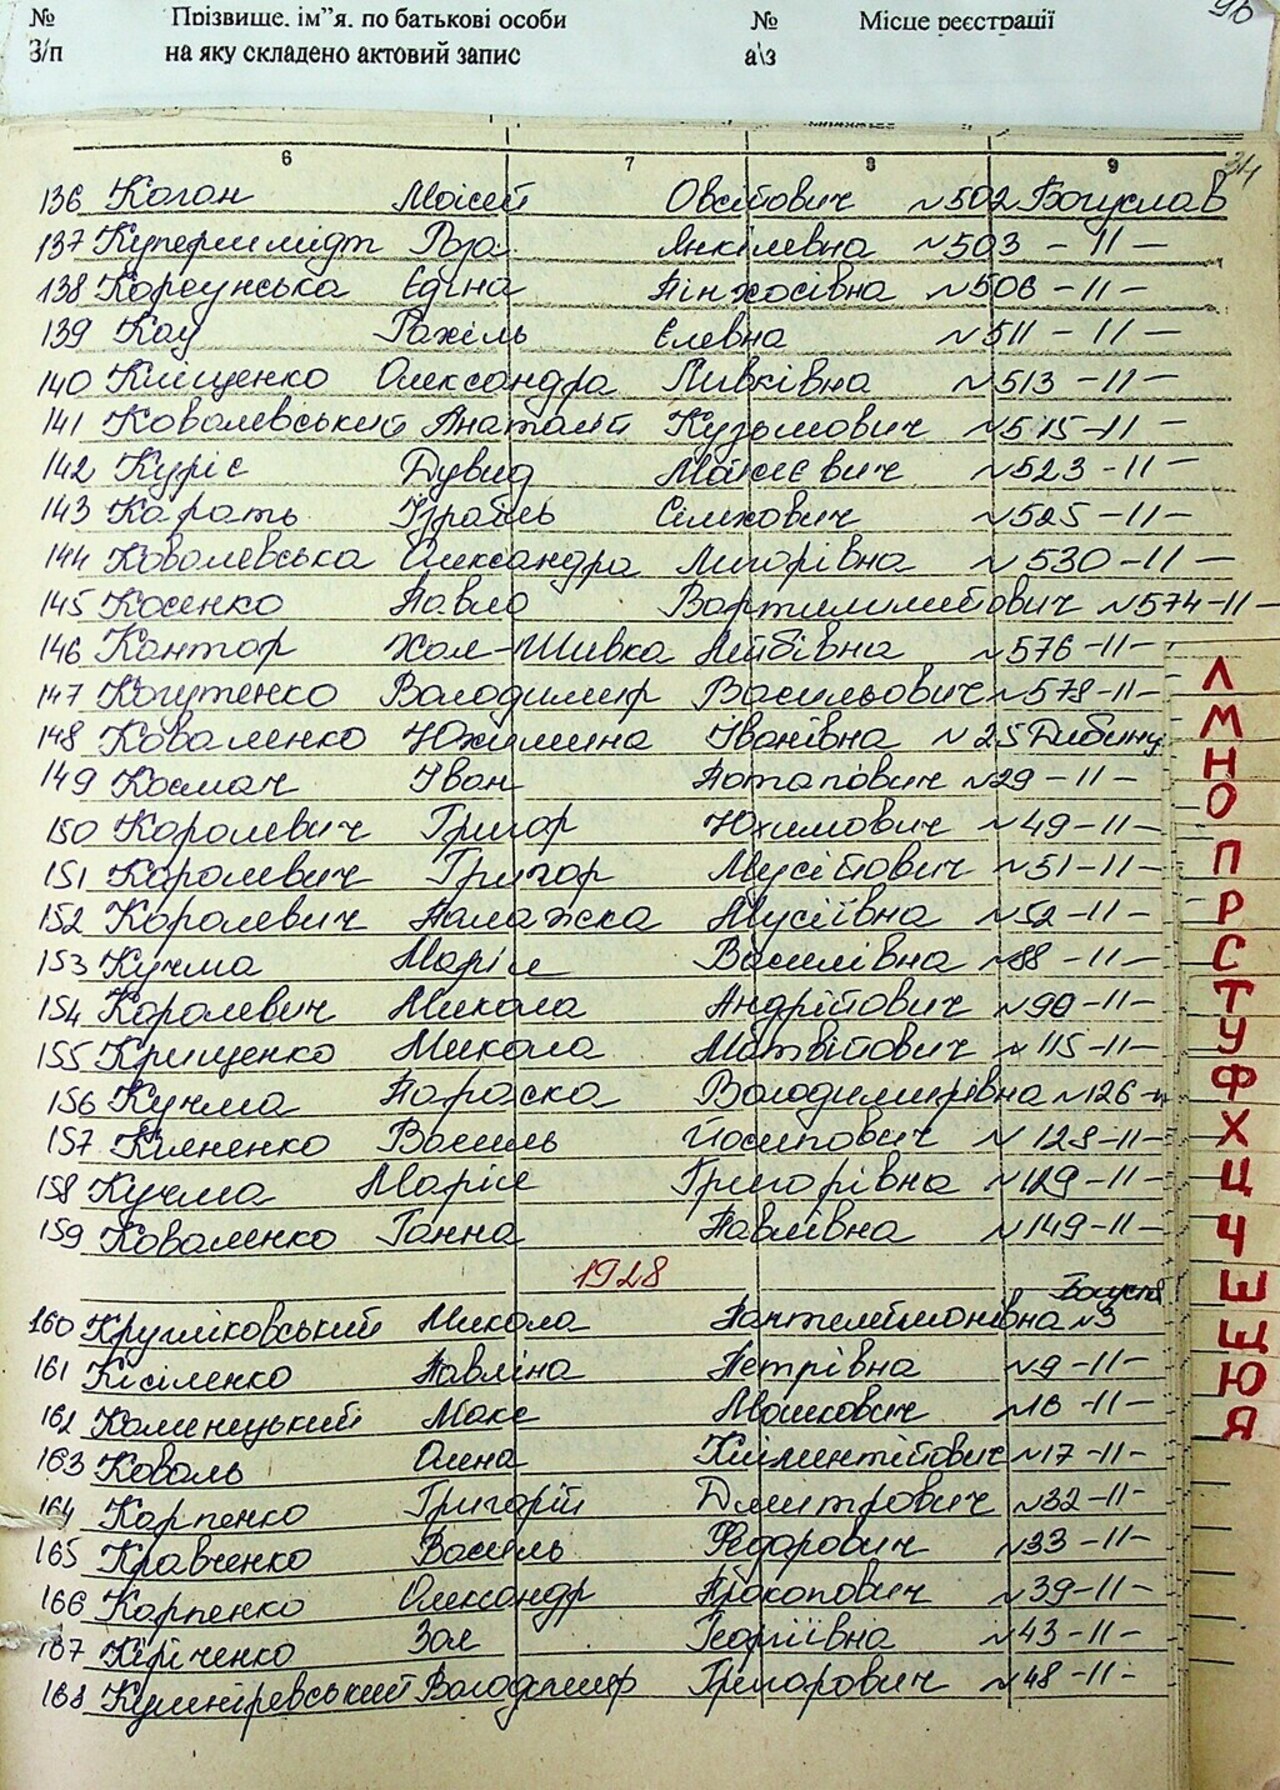 № Прізвище, ім"я, по батькові особи № Місце реєстрації
З/п на яку складено актовий запис а\з
6 7 8 9
136 Коган Моісей Овсійович №502 Богуслав
137 Купершмідт Роза Янкілевна №503 - 11 -
138 Корсунська Єдіна Пінхосівна №506 - 11 -
139 Кац Рахіль Єлевна №511 - 11 -
140 Кліщенко Олександра Ливківна №513 - 11 -
141 Ковалевський Анатолій Кузьмович №515 - 11 -
142 Куріс Дувид Моісеєвич №523 - 11 -
143 Карать Ізраїль Сімхович №525 - 11 -
144 Ковалевська Олександра Лигорівна №530 - 11 -
145 Косенко Павло Вортиломейович №574 - 11 -
146 Кантор Хая-Шивка Лейбівна №576 - 11 -
147 Когутенко Володимир Васильович №578 - 11 -
148 Коваленко Юхимина Іванівна №25 Дибинці
149 Космач Іван Потапович №29 - 11 -
150 Королевич Григор Юхимович №49 - 11 -
151 Королевич Григор Мусійович №51 - 11 -
152 Королевич Палажка Мусіївна №52 - 11 -
153 Кучма Марія Василівна №88 - 11 -
154 Королевич Микола Андрійович №90 - 11 -
155 Крищенко Микола Матвійович №115 - 11 -
156 Кучма Параска Володимирівна №126 - 11
157 Кияненко Василь Йосипович №128 - 11 -
158 Кучма Марія Григорівна №129 - 11 -
159 Коваленко Ганна Павлівна №149 - 11 -
1928
160 Кругліковський Микола Пантелеймонівна №3
161 Кісіленко Павліна Петрівна №9 - 11 -
162 Каменецький Макс Мошкович №16 - 11 -
163 Коваль Олена Климентійович №17 - 11 -
164 Карпенко Григорій Дмитрович №32 - 11 -
165 Кравченко Василь Федорович №33 - 11 -
166 Карпенко Олександр Прокопович №39 - 11 -
167 Кіріченко Зоя Георгіївна №43 - 11 -
168 Кушніревський Володимир Григорович №48 - 11 -
Л
М
Н
О
П
Р
С
Т
У
Ф
Х
Ц
Ч
Ш
Щ
Ю
Я